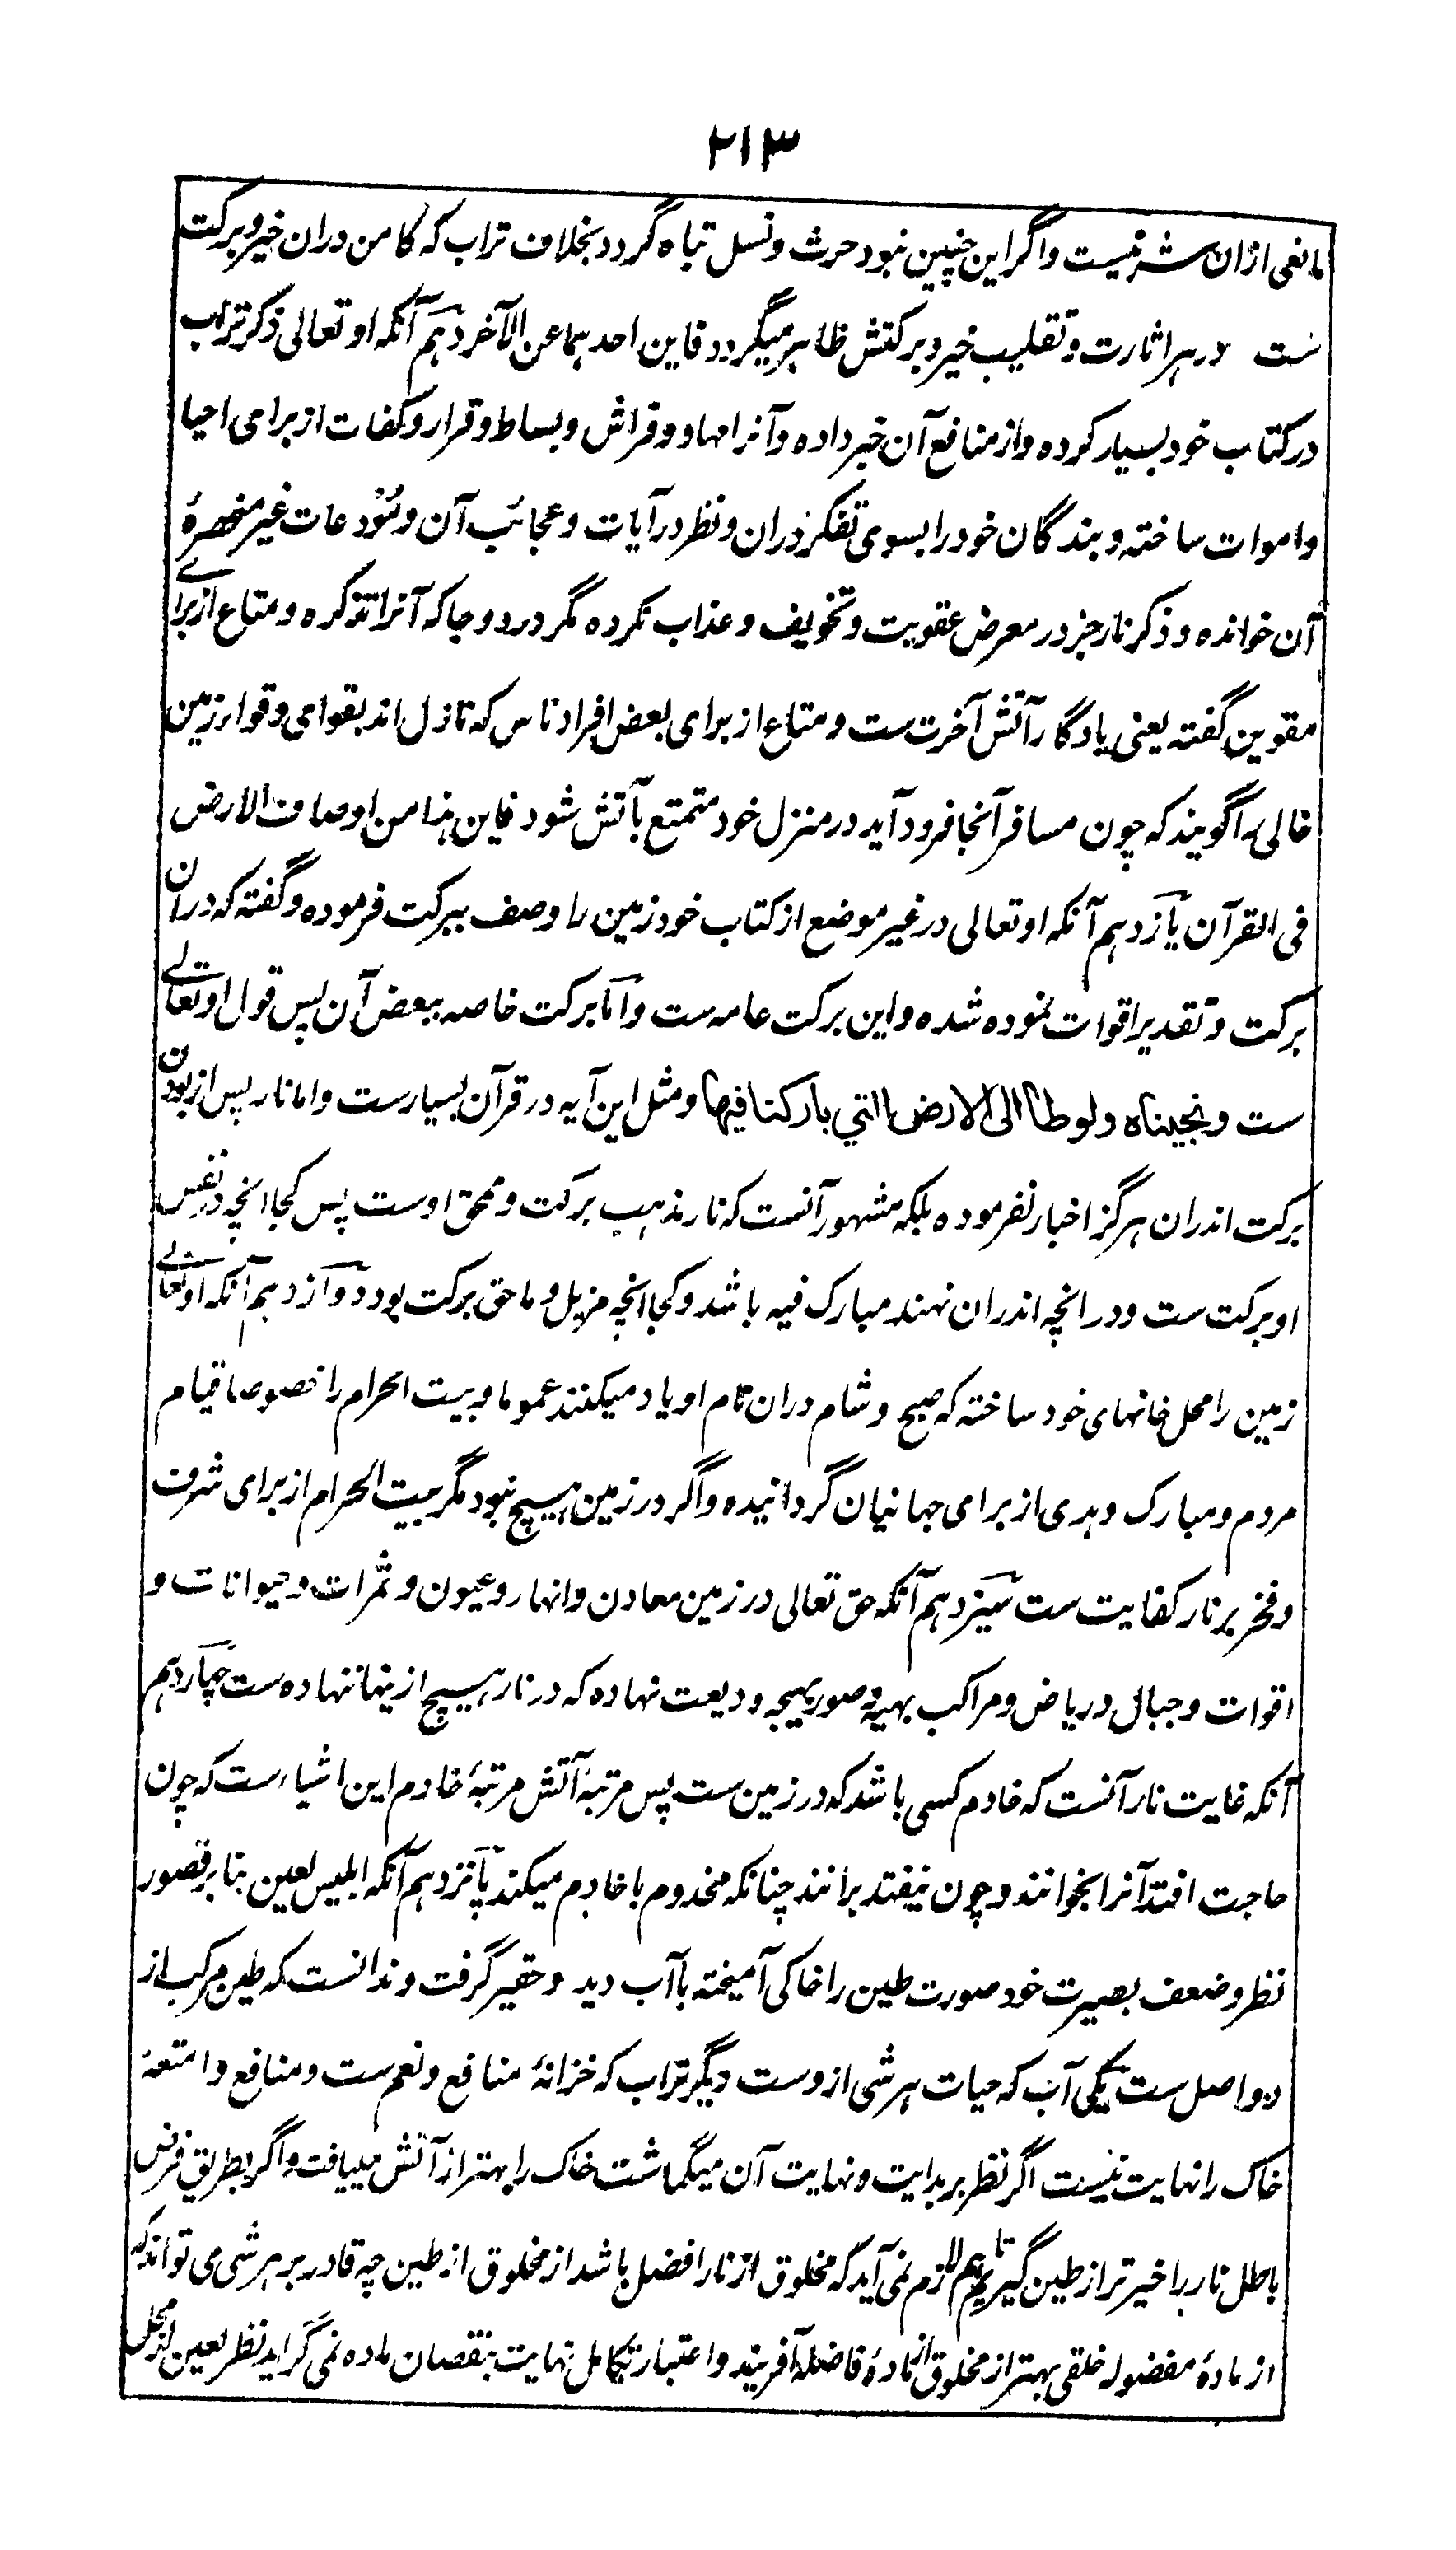 ۲۱۳
مانعی ازان شر نیست و اگر این چنین نبود حرث و نسل تباه گردد بخلاف تراب که کامن دران خیر و برکت
ست در هر اثارت و تقلیب خیر و برکتش ظاهر میگردد فاین احدهما عن الآخر دهم آنکه او تعالی ذکر تراب
در کتاب خود بسیار کرده و از منافع آن خبر داده و آنرا مهاد و فراش و بساط و قرار و کفات از برای احیا
و اموات ساخته و بندگان خود را بسوی تفکر دران و نظر در آیات و عجائب آن و مودعات غیر منحصرهٔ
آن خوانده و ذکر نار جز در معرض عقوبت و تخویف و عذاب نکرده مگر در دو جا که آنرا تذکره و متاع از برای
مقوین گفته یعنی یادگار آتش آخرت ست و متاع از برای بعض افراد ناس که نازل اند بقوا می و قوا زمین
خالی را گویند که چون مسافر آنجا فرود آید در منزل خود متمتع بآتش شود فاین هذا من اوصاف الارض
فی القرآن یازدهم آنکه او تعالی در غیر موضع از کتاب خود زمین را وصف ببرکت فرموده و گفته که دران
برکت و تقدیر اقوات نموده شده و این برکت عامه ست و اما برکت خاصه ببعض آن پس قول او تعالے
ست ونجیناه ولوطا الی الارض التی بارکنا فیها و مثل این آیه در قرآن بسیارست و اما نار پس از بودن
برکت اندران هرگز اخبار نفرموده بلکه مشهور آنست که نار مذهب برکت و ممحق اوست پس کجا انچه در نفس
او برکت ست و در انچه اندران نهند مبارک فیه باشد و کجا انچه مزیل و ماحق برکت بود دوازدهم آنکه او تعالے
زمین را محل خانهای خود ساخته که صبح و شام دران نام او یاد میکنند عموما و بیت الحرام را خصوصا قیام
مردم و مبارک و هدی از برای جهانیان گردانیده و اگر در زمین هیچ نبود مگر بیت الحرام از برای شرف
و فخر بر نار کفایت ست سیزدهم آنکه حق تعالی در زمین معادن و انهار و عیون و ثمرات و حیوانات و
اقوات و جبال و ریاض و مراکب بهیه و صور بهیجه ودیعت نهاده که در نار هیچ ازینها ننهاده ست چهاردهم
آنکه غایت نار آنست که خادم کسی باشد که در زمین ست پس مرتبهٔ آتش مرتبهٔ خادم این اشیاء ست که چون
حاجت افتد آنرا بخوانند و چون نیفتد برانند چنانکه مخدوم با خادم میکند پانزدهم آنکه ابلیس لعین بنا بر قصور
نظر و ضعف بصیرت خود صورت طین را خاکی آمیخته بآب دید و حقیر گرفت و ندانست که طین مرکب از
دو اصل ست یکی آب که حیات هر شی ازوست دیگر تراب که خزانهٔ منافع و نعم ست و منافع و امتعهٔ
خاک را نهایت نیست اگر نظر بر بدایت و نهایت آن میگماشت خاک را بهتر از آتش مییافت و اگر بطریق فرض
باطل نار را خیرتر از طین گیریم تا هم لازم نمی آید که مخلوق از نار افضل باشد از مخلوق از طین چه قادر بر هر شی می تواند که
از مادهٔ مفضوله خلقی بهتر از مخلوق از مادهٔ فاضله آفریند و اعتبار بکامل نهایت بنقصان ماده نمی گراید نظر لعین از محل